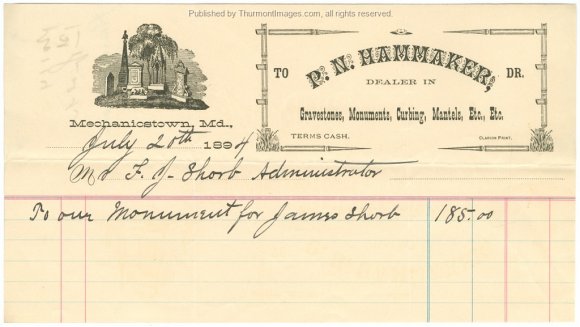 Published by ThurmontImages.com, all rights reserved.
TO P. N. HAMMAKER, DR.
DEALER IN
Gravestones, Monuments, Curbing, Mantels, Etc., Etc.
TERMS CASH. CLARION PRINT.
Mechanicstown, Md.,
July 20th 1894
Mr F. J. Shorb Administrator
To our Monument for James Shorb 185.00